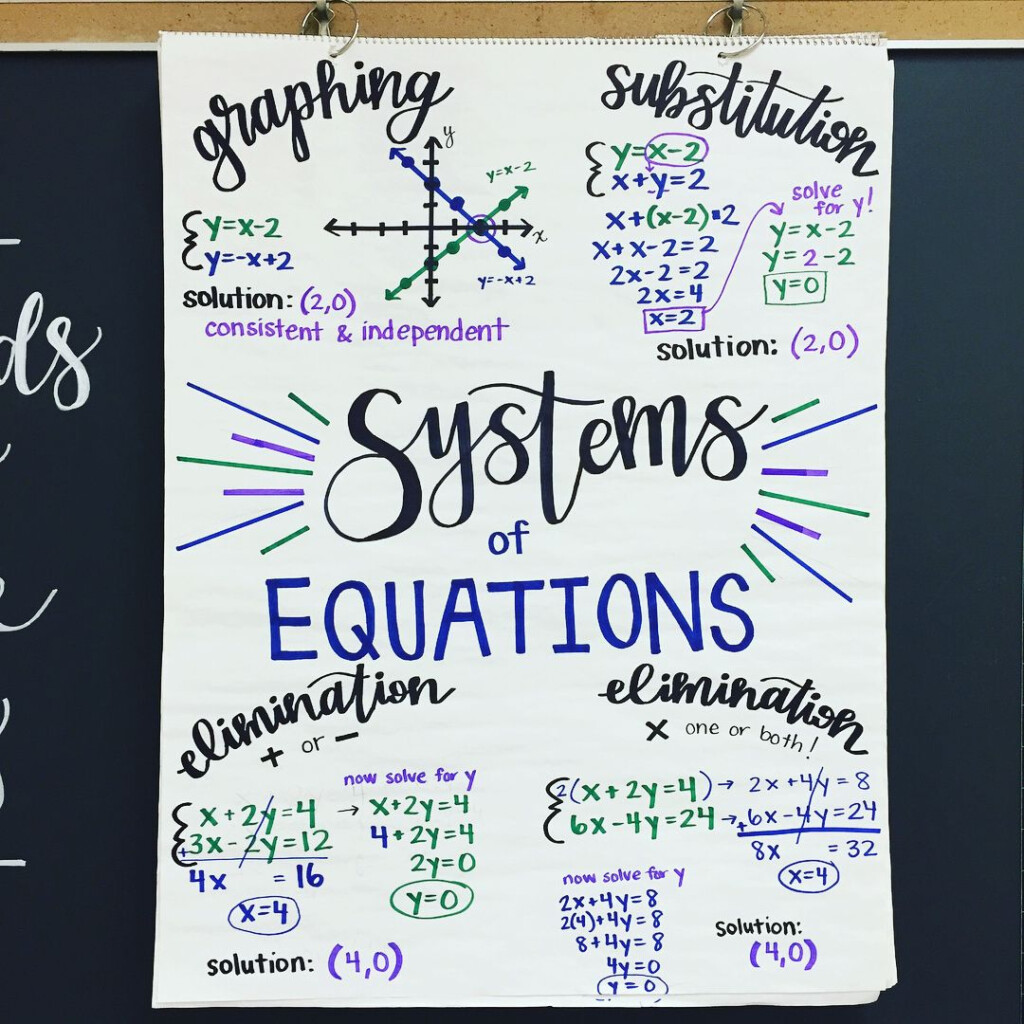 graphing
y
y=x-2
x
y=-x+2
{y=x-2
y=-x+2
solution: (2,0)
consistent & independent
substitution
{y=x-2
x+y=2
x+(x-2)=2
x+x-2=2
2x-2=2
2x=4
x=2
solve
for y!
y=x-2
y=2-2
y=0
solution: (2,0)
Systems
of
EQUATIONS
elimination
+ or -
{x+2y=4
+3x-2y=12
4x =16
x=4
now solve for y
→ x+2y=4
4+2y=4
2y=0
y=0
solution: (4,0)
elimination
x one or both!
{2(x+2y=4) → 2x+4y=8
6x-4y=24 → +6x-4y=24
8x =32
x=4
now solve for y
2x+4y=8
2(4)+4y=8
8+4y=8
4y=0
y=0
solution:
(4,0)
ds